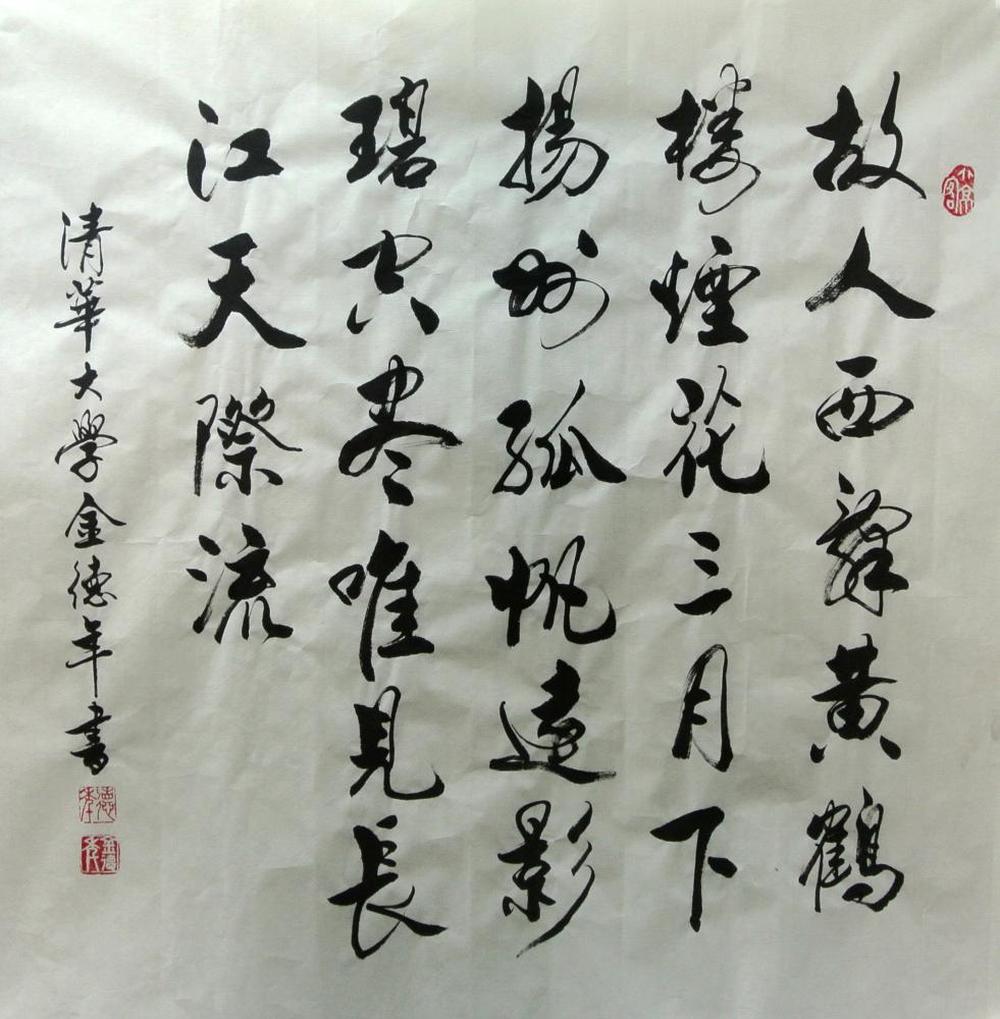 故人西辭黃鶴
楼煙花三月下
揚州孤帆遠影
碧空尽唯見長
江天際流
清華大学金德年書